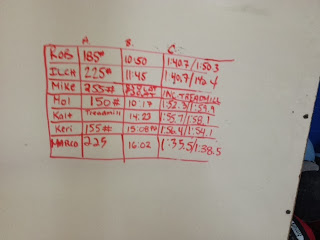 A. B. C.
ROB 185# 10:50 1:40.7/1:50.3
225# 11:45 1:40.7/
Mike 255#
Mol 150# 10:17
Kait Treadmill 14:23 1:55.7/1:58.1
Keri 155# 15:08 1:56.4/1:54.1
MARCO 225 16:02 1:35.5/1:38.5